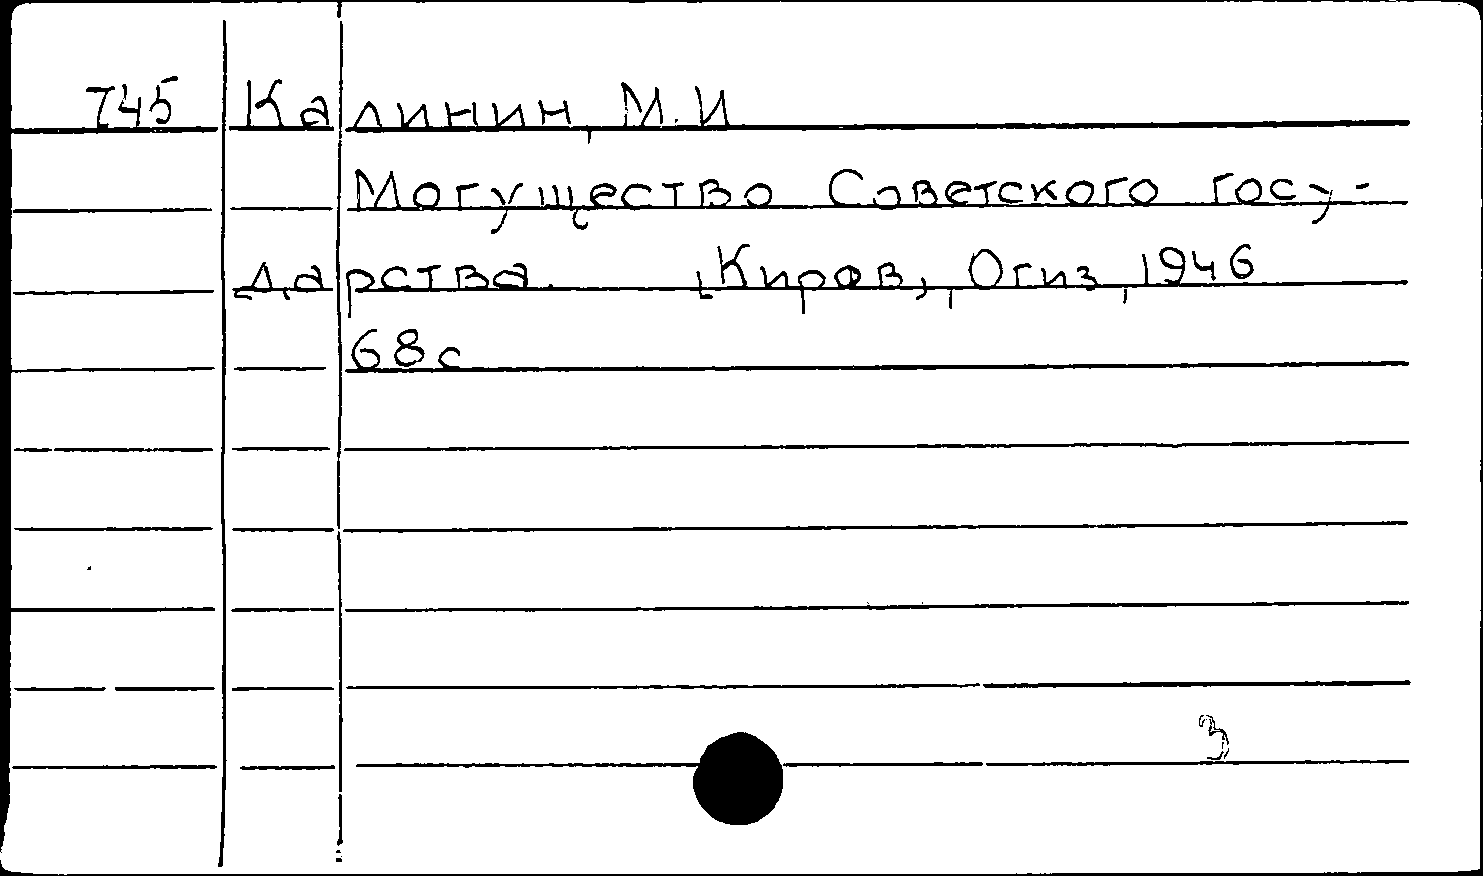 745 Калинин, М.И
Могущество Советского госу-
дарства. [Киров], Огиз, 1946
68с
3